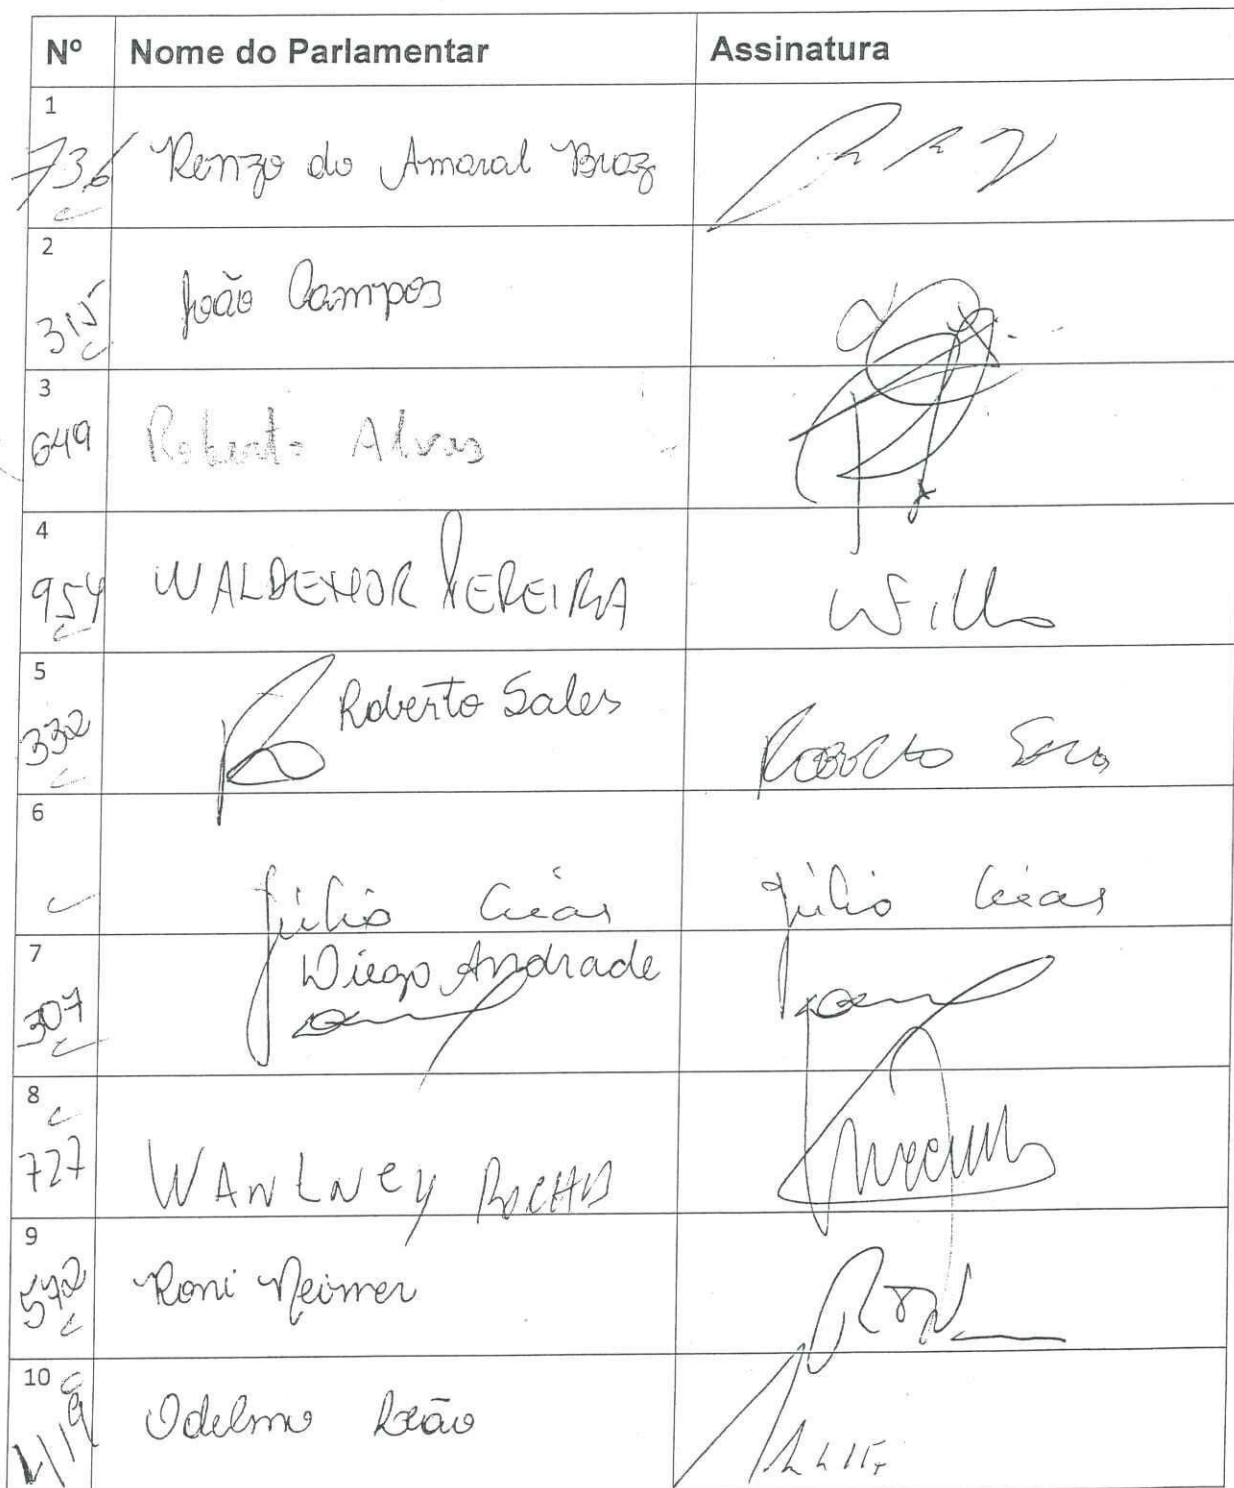 Nº Nome do Parlamentar Assinatura
1
736 Renzo do Amaral Braz
2
315 João Campos
3
649 Roberto Alves
4
954 WALDENOR PEREIRA
5
332 Roberto Sales Roberto Sales
6
Júlio César Júlio César
7
307 Diego Andrade
8
727 WANLNEY ROCHA
9
572 Roni Neimer
10
Odelmo Leão